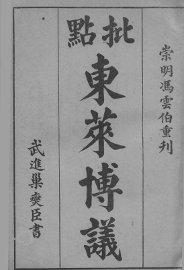 崇明馮雲伯重刊
批點
東萊博議
武進巢奕臣書